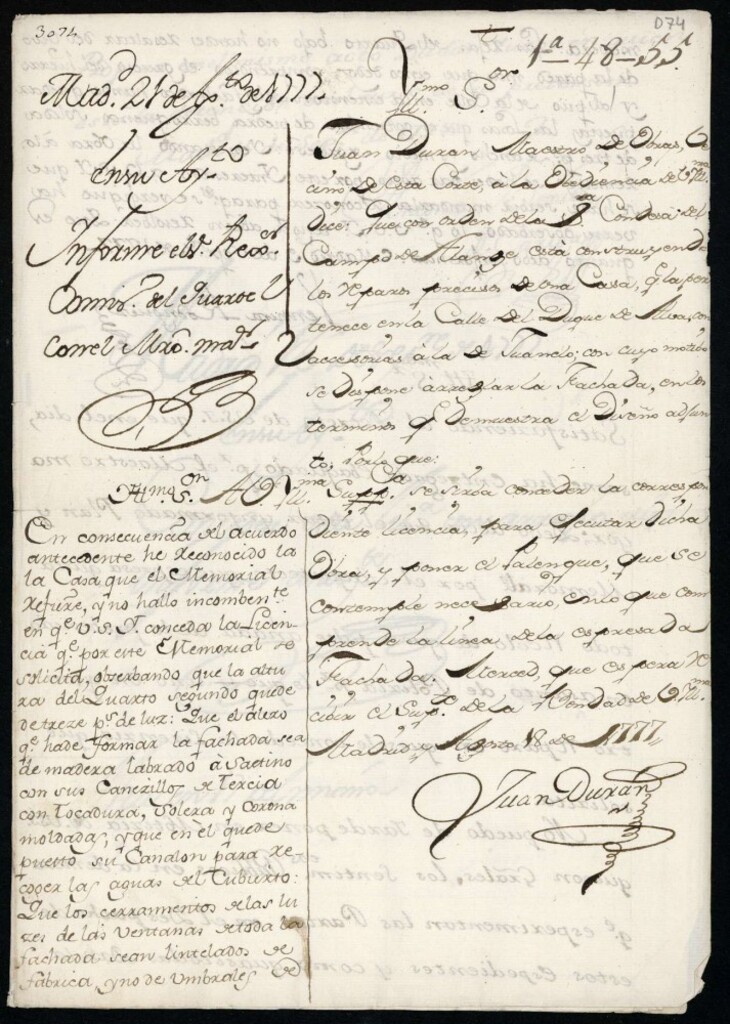 3074
074
1ª 48-55
Madᵈ. 21 de Agᵗᵒ de 1777.
en su Ayᵗᵒ
Informe el Sʳ. Rexᵒʳ
Comisº. del Quartel
con el Mrô. maᵒʳ
Yllmo Sᵒʳ
Juan Duran Maestro de Obras, Ve
cino de esta Corte, à la Obediencia de V. Yllma
Dice: Que con orden de la Sª. Condesa del
Campo de Alange, está construyendo
los Reparos precisos de una Casa, qᵉ la per
tenece en la Calle del Duque de Alva, con
accesorias à la de Juanelo; con cuyo motibo
se dispone arreglar la Fachada, en los
terminos qᵉ demuestra el Diseño adjun
to; Por lo que:
A V. Yllma Suppᶜᵃ se sirva conceder la correspon
diente licencia, para egecutar dicha
Obra, y poner el Palenque, que se
contemple necesario, en lo que com
prende la linea, de la espresada
Fachada. Merced, que espera Re
civir el Supᵗᵉ de la Bondad de V. Yllma
Madrid y Agosto 18 de 1777,
Juan Duran
Yllmo Sᵒʳ
En consecuencia del acuerdo
antecedente he Reconocido la
la Casa que el Memorial
Refiere, y no hallo incombenᵗᵉ
en qᵉ V. S. Y. conceda la Licen-
cia qᵉ por este Memorial se
solicita, obserbando que la altu
ra del Quarto segundo quede
de treze pˢ de luz: Que el alero
qᵉ ha de formar la fachada sea
de madera labrado à Saetino
con sus Canezillos de tercia
con tocadura, Solera y Corona
moldada; y que en el quede
puesto su Canalon para re-
coger las aguas del Cubierto:
Que los cerramientos de las lu
zes de las ventanas de toda la
fachada sean lintelados de
fabrica, y no de Umbrales de